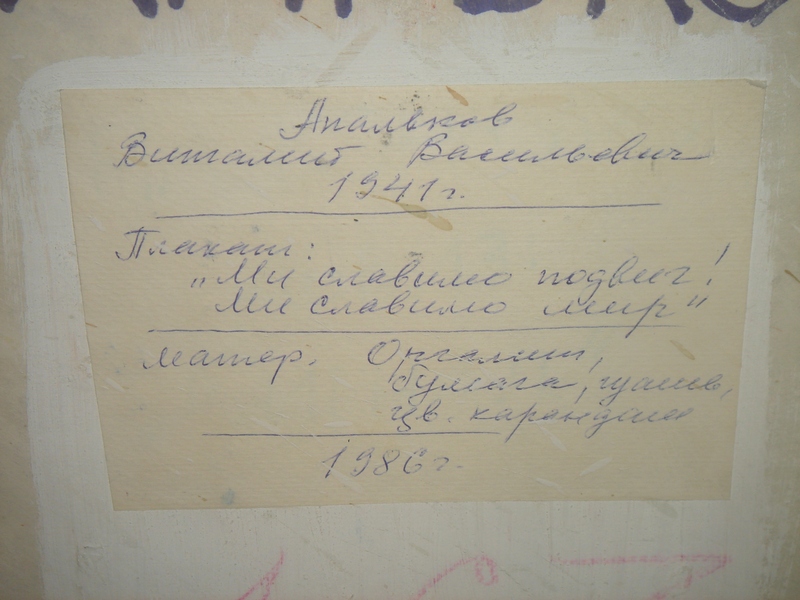 Апальков
Виталий Васильевич
1941г.
Плакат:
„Ми славимо подвиг!
Ми славимо мир"
матер. Оргалит,
бумага, гуашь,
цв. карандаш
1986г.